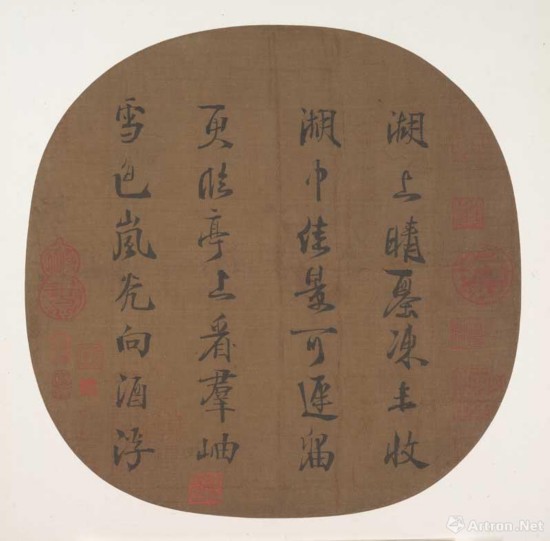 湖上晴虽凍未收
湖中佳景可遲留
更臨亭上看羣岫
雪色嵐光向酒浮
Artron.Net